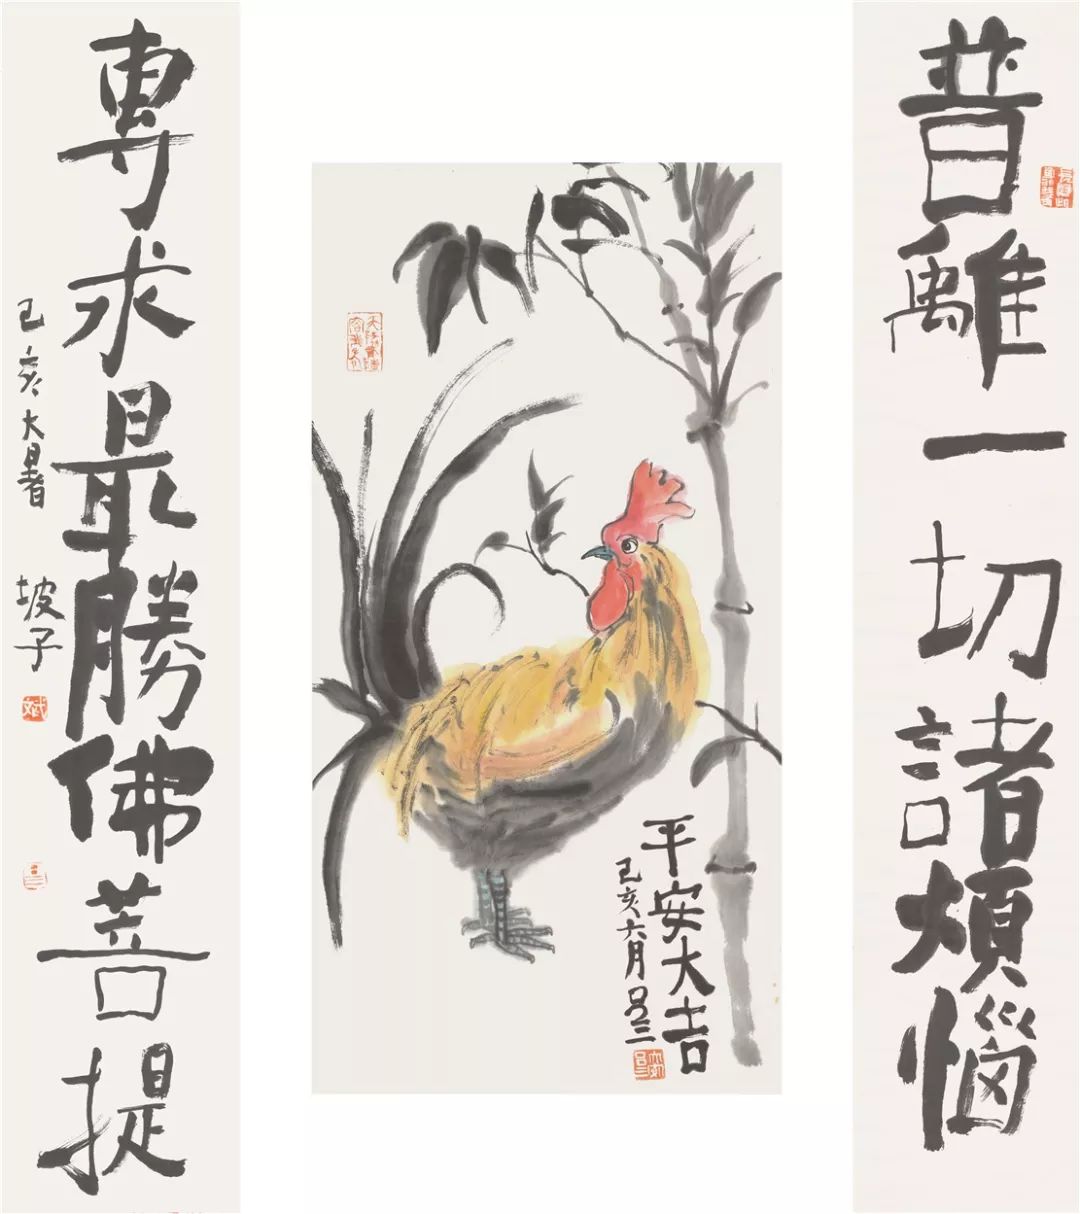 普離一切諸煩惱
平安大吉
己亥六月呂三
專求最勝佛菩提
己亥大暑 坡子